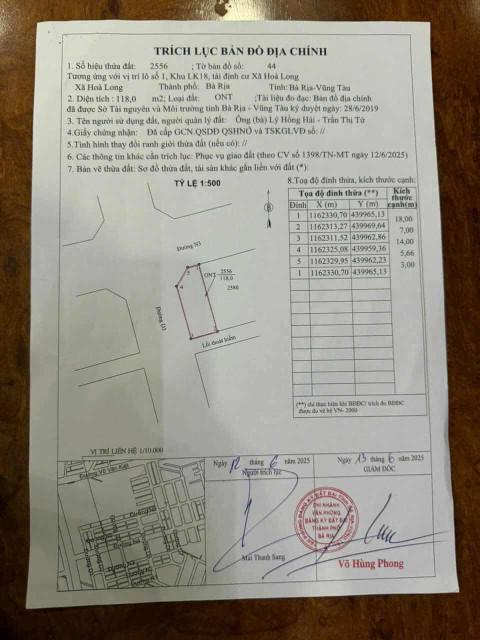 TRÍCH LỤC BẢN ĐỒ ĐỊA CHÍNH
1. Số hiệu thửa đất: 2556 ; Tờ bản đồ số: 44
Tương ứng với vị trí lô số 1, Khu LK18, tái định cư Xã Hoà Long
Xã Hoà Long Thành phố: Bà Rịa Tỉnh: Bà Rịa-Vũng Tàu
2. Diện tích : 118,0 m2; Loại đất: ONT ;Tài liệu đo đạc: Bản đồ địa chính
đã được Sở Tài nguyên và Môi trường tỉnh Bà Rịa - Vũng Tàu ký duyệt ngày: 28/6/2019
3. Tên người sử dụng đất, người quản lý đất: Ông (bà) Lý Hồng Hải - Trần Thị Tứ
4.Giấy chứng nhận: Đã cấp GCN.QSDĐ QSHNỞ và TSKGLVĐ số: //
5.Tình hình thay đổi ranh giới thửa đất (nếu có): //
6. Các thông tin khác cần trích lục: Phục vụ giao đất (theo CV số 1398/TN-MT ngày 12/6/2025)
7. Bản vẽ thửa đất: Sơ đồ thửa đất, tài sản khác gắn liền với đất (*):
TỶ LỆ 1:500
B
Đường N3
5
1
4
ONT 2556
118,0
2580
Đường D3
3
2
Lối thoát hiểm
8.Toạ độ đỉnh thửa, kích thước cạnh:
Tọa độ đỉnh thửa (**) Kích thước cạnh(m)
Đỉnh X (m) Y (m)
1 1162330,70 439965,13
18,00
2 1162313,27 439969,64
7,00
3 1162311,52 439962,86
14,00
4 1162325,08 439959,36
5,66
5 1162329,95 439962,23
3,00
1 1162330,70 439965,13
(**) chỉ thực hiện khi BĐĐC/ trích đo BĐĐC
được đo vẽ hệ VN- 2000
VỊ TRÍ LIÊN HỆ 1/10.000
Đường Võ Văn Kiệt
Ngày 12 tháng 6 năm 2025
Người trích lục
Mai Thanh Sang
Ngày 13 tháng 6 năm 2025
GIÁM ĐỐC
CHI NHÁNH
VĂN PHÒNG
ĐĂNG KÝ ĐẤT ĐAI
THÀNH PHỐ
BÀ RỊA
Võ Hùng Phong